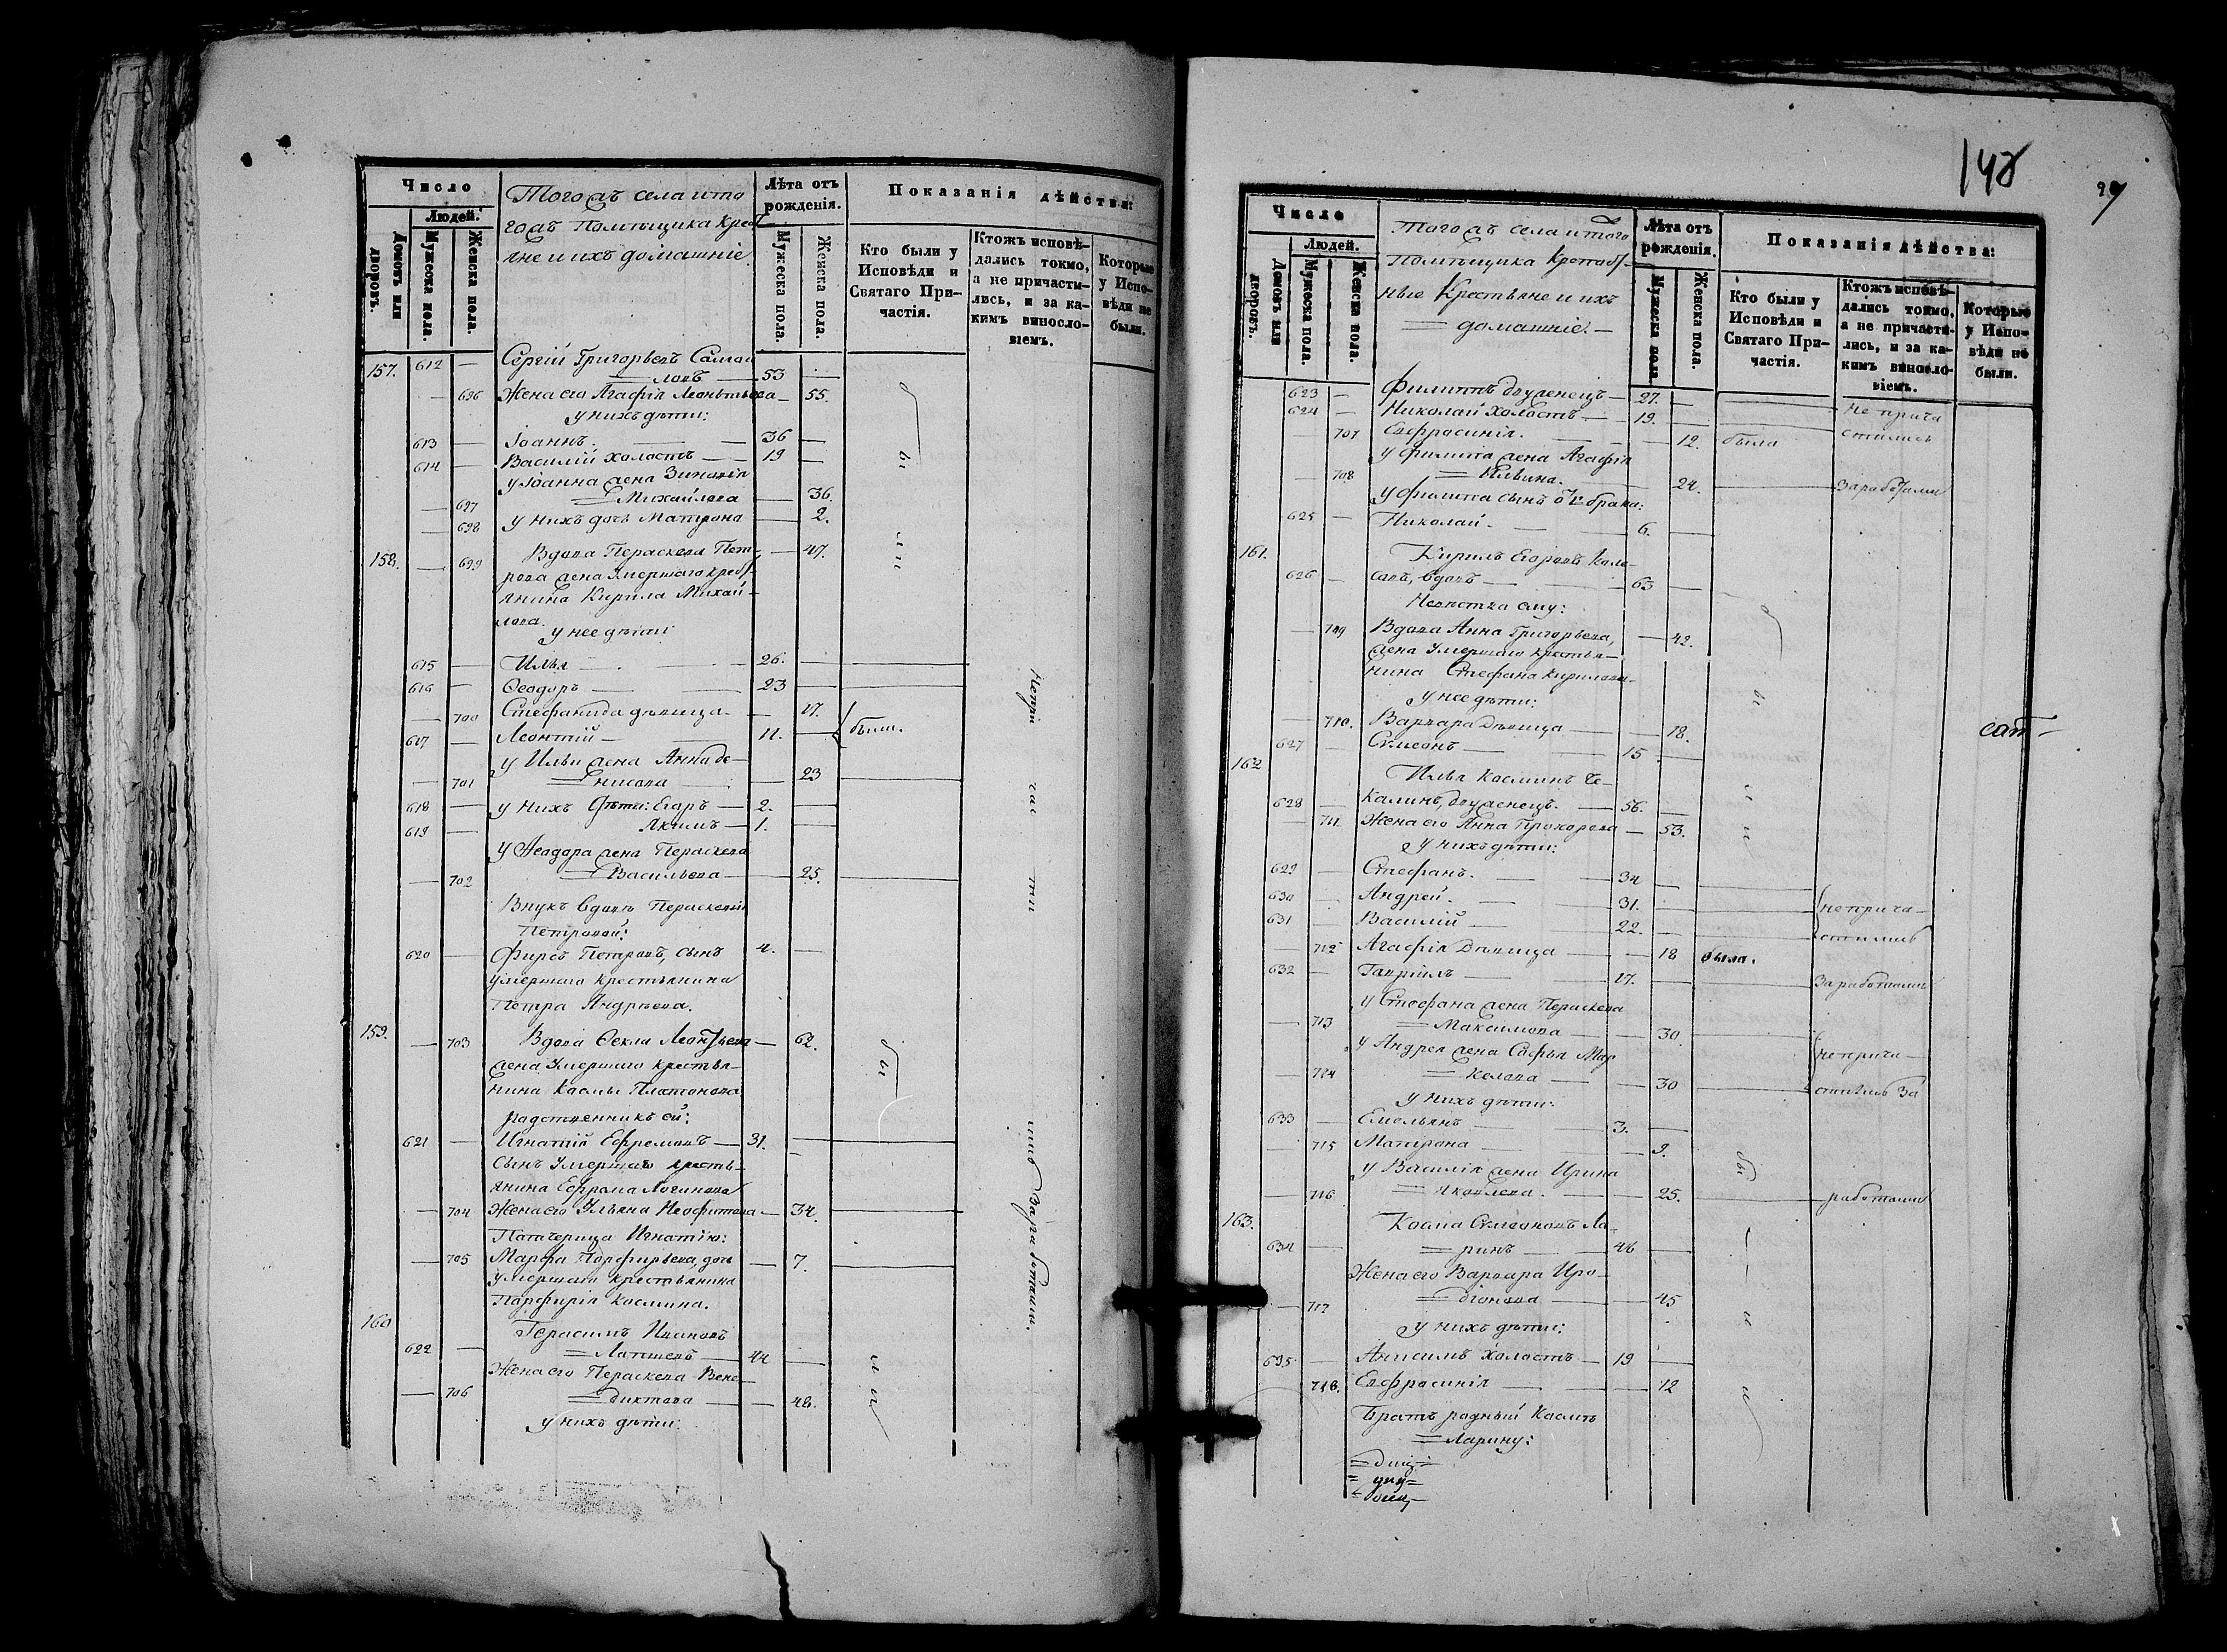 Число
Людей.
Домовъ или дворовъ.
Мужеска пола.
Женска пола.
Тогожъ села и то
гожъ Помѣщика крес
яне и ихъ домашніе.
Лѣта отъ рожденія.
Мужеска пола.
Женска пола.
Показанія дѣйства:
Кто были у Исповѣди и Святаго При-
частія.
Ктожъ исповѣ-
дались токмо,
а не причасти-
лись, и за ка-
кимъ винословіемъ.
Которые
у Испо-
вѣди не
были.
157. 612 — Сергій Григорьевъ Самой
ловъ — 53 —
— 696 Жена его Агафія Леонтьева — 55.
у нихъ дѣти:
613 — Іоаннъ. — 36 —
614 — Василій холостъ — 19 —
у Іоанна жена Зиновія
— 697 Михайлова — 36.
— 698 у нихъ дочь Матрона — 2.
158. — 699 Вдова Пераскева Пет — 47.
рова жена умершаго крест
янина Кирила Михай-
лова.
у нее дѣти:
615 — Илья — 26. —
616 — Ѳеодоръ — 23 —
— 700 Стефанида дѣвица — 17.
617 — Леонтій — 11. — были.
у Ильи жена Анна де-
— 701 нисова — 23
618 — у нихъ дѣти: Егоръ — 2. —
619 — Акимъ — 1. —
у Ѳеодора жена Пераскева
— 702 Васильева — 25.
Внукъ вдовѣ Пераскевѣ
Петровой:
620 — Фирсъ Петровъ, сынъ 4. —
умершаго крестьянина
Петра Андрѣева.
159. — 703 Вдова Ѳекла Леонтьева — 62.
жена умершаго крестья-
нина Космы Платонова
родственникъ ей:
621 — Игнатій Ефремовъ — 31. —
сынъ умершаго кресть-
янина Ефрема Логинова
— 704 Жена его Ульяна Неофитова — 34.
Патчерица Игнатію:
— 705 Марфа Порфирьева, дочь — 7.
умершаго крестьянина
Парфирія Космина.
160 Герасимъ Ивановъ
622 — Лапшевъ — 44 —
Жена его Пераскева Вене-
— 706 диктова — 48.
у нихъ дѣти:
бы
ли
бы
ли
Непри ча сти лись За работами.
148
29
Число
Людей.
Домовъ или дворовъ.
Мужеска пола.
Женска пола.
Тогожъ села и того
Помѣщика Крепост-
ные Крестьяне и ихъ
домашніе.
Лѣта отъ рожденія.
Мужеска пола.
Женска пола.
Показанія дѣйства:
Кто были у
Исповѣди и
Святаго При-
частія.
Ктожъ исповѣ-
дались токмо,
а не причасти-
лись, и за ка-
кимъ винословіемъ.
Которые
у Испо-
вѣди не
были.
623 — Филиппъ двуженецъ — 27. — не прича
624 — Николай холостъ — 19. —
— 707 Евфросинія. — 12. была стились
у Филиппа жена Агафія
— 708 Ильина. — 24. За работами
у Филиппа сынъ от 1го брака:
625 — Николай — 6. —
161. Кирилъ Егоровъ Коло-
626 — совъ, вдовъ — 63 —
Невѣстка ему:
— 709 Вдова Анна Григорьева, — 42.
жена умершаго крестья-
нина Стефана Кирилова.
у нее дѣти:
— 710. Варвара дѣвица — 18.
627 — Сумеонъ — 15 —
162 Илья Косминъ Че-
628 — калинъ, двуженецъ. — 56. —
— 711 Жена его Анна Прохорова — 53.
у нихъ дѣти:
629 — Стефанъ. — 34 —
630 — Андрей. — 31. — не прича-
631 — Василій — 22. — стились
— 712 Агафія дѣвица — 18 была.
632 — Гавріилъ — 17. — За работами
у Стефана жена Пераскева
— 713 Максимова — 30.
у Андрея жена Софья Мар не прича-
— 714 келова — 30 стились За
у нихъ дѣти:
633 — Емельянъ — 3. —
— 715 Матрона — 9.
у Василія жена Ирина
— 716 Яковлева. — 25. работами
163. Косма Сумеоновъ Ла-
634 — ринъ — 46 —
Жена его Варвара Иро-
— 717 діонова — 45
у нихъ дѣти:
635 — Анисимъ холостъ — 19 —
— 718. Евфросинія — 12
Братъ родный Космѣ
Ларину:
бы
ли
бы
ли